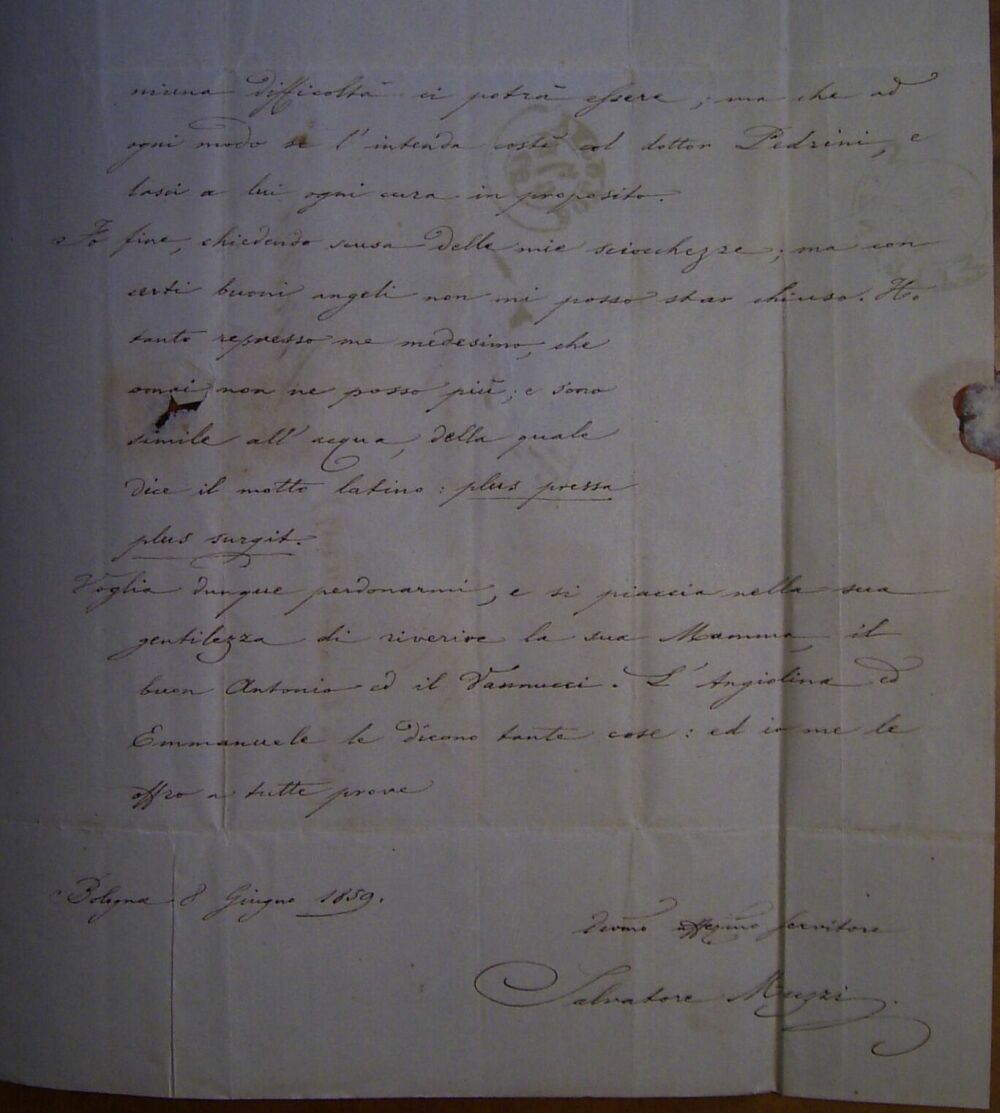 niuna difficoltà ci potrà essere; ma che ad
ogni modo se l'intenda costì col dottor Pedrini, e
lasci a lui ogni cura in proposito.
Fo fine, chiedendo scusa delle mie sciocchezze; ma con
certi buoni angeli non mi posso star chiuso. Ho
tanto represso me medesimo, che
omai non ne posso più; e sono
simile all'acqua, della quale
dice il motto latino: plus pressa
plus surgit.
Voglia dunque perdonarmi, e si piaccia nella sua
gentilezza di riverire la sua Mamma, il
buon Antonio ed il Vannucci. L'Angiolina ed
Emmanuele le dicono tante cose: ed io me le
offro a tutte prove
Bologna 8 Giugno 1859.
Devmo affezmo servitore
Salvatore Muzzi.